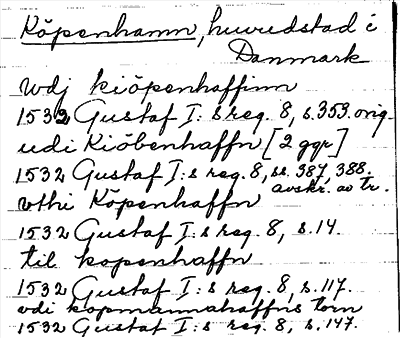 Köpenhamn, huvudstad i
Danmark
wdj kiöpenhaffinn
1532 Gustaf I:s reg. 8, s.353. orig.
udi Kiöbenhaffn [2 ggr]
1532 Gustaf I:s reg. 8, ss. 387, 388.
avskr. av tr.
vthi Köpenhaffn
1532 Gustaf I:s reg. 8, s.14.
til kopenhaffn
1532 Gustaf I:s reg. 8, s.117.
vdi kopmannahaffns torn
1532 Gustaf I:s reg. 8, s.147.